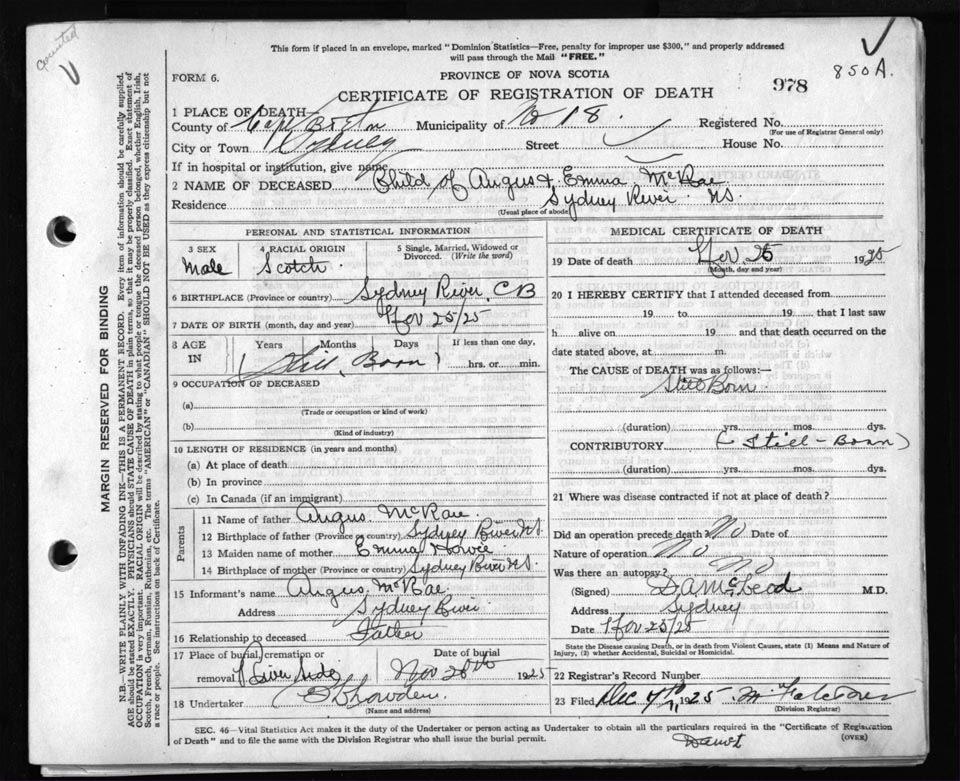 counted
This form if placed in an envelope, marked "Dominion Statistics—Free, penalty for improper use $300," and properly addressed
will pass through the Mail "FREE."
FORM 6.
PROVINCE OF NOVA SCOTIA
850A.
CERTIFICATE OF REGISTRATION OF DEATH
978
1 PLACE OF DEATH
County of Cape Breton Municipality of No 18. Registered No.
(For use of Registrar General only)
City or Town Sydney Street House No.
If in hospital or institution, give name
2 NAME OF DECEASED Child of Angus & Emma McRae
Residence Sydney River NS.
(Usual place of abode)
PERSONAL AND STATISTICAL INFORMATION
3 SEX 4 RACIAL ORIGIN 5 Single, Married, Widowed or
Divorced. (Write the word)
Male Scotch
6 BIRTHPLACE (Province or country) Sydney River, CB
7 DATE OF BIRTH (month, day and year) Nov 25/25
8 AGE IN Years Months Days If less than one day,
(Still Born) hrs. or min.
9 OCCUPATION OF DECEASED
(a)
(Trade or occupation or kind of work)
(b)
(Kind of industry)
10 LENGTH OF RESIDENCE (in years and months)
(a) At place of death
(b) In province
(c) In Canada (if an immigrant)
Parents
11 Name of father Angus McRae
12 Birthplace of father (Province or country) Sydney River NS
13 Maiden name of mother Emma
14 Birthplace of mother (Province or country) Sydney River NS.
15 Informant's name Angus McRae
Address Sydney River
16 Relationship to deceased Father
17 Place of burial, cremation or Date of burial
removal River Side Nov 26th 1925
18 Undertaker
(Name and address)
MEDICAL CERTIFICATE OF DEATH
19 Date of death Nov. 25 1925
(Month, day and year)
20 I HEREBY CERTIFY that I attended deceased from
19 to 19 that I last saw
h alive on 19 and that death occurred on the
date stated above, at m.
The CAUSE of DEATH was as follows:—
Still Born
(duration) yrs. mos. dys.
CONTRIBUTORY (Still-Born)
(duration) yrs. mos. dys.
21 Where was disease contracted if not at place of death?
Did an operation precede death? No Date of
Nature of operation No
Was there an autopsy? No
(Signed) McLeod M.D.
Address Sydney
Date Nov 25/25
State the Disease causing Death, or in death from Violent Causes, state (1) Means and Nature of
Injury, (2) whether Accidental, Suicidal or Homicidal.
22 Registrar's Record Number
23 Filed Dec 7th, 1925
(Division Registrar)
SEC. 46—Vital Statistics Act makes it the duty of the Undertaker or person acting as Undertaker to obtain all the particulars required in the "Certificate of Registration
of Death" and to file the same with the Division Registrar who shall issue the burial permit.
(OVER)
MARGIN RESERVED FOR BINDING
N.B.—WRITE PLAINLY WITH UNFADING INK—THIS IS A PERMANENT RECORD. Every item of information should be carefully supplied.
AGE should be stated EXACTLY. PHYSICIANS should STATE CAUSE OF DEATH in plain terms, so that it may be properly classified. Exact statement of
OCCUPATION is very important. RACIAL ORIGIN will be described by stating to what people or tongue the deceased person belonged, whether English, Irish,
Scotch, French, German, Russian, Ruthenian, etc. The terms "AMERICAN" or "CANADIAN" SHOULD NOT BE USED as they express citizenship but not
a race or people. See instructions on back of Certificate.